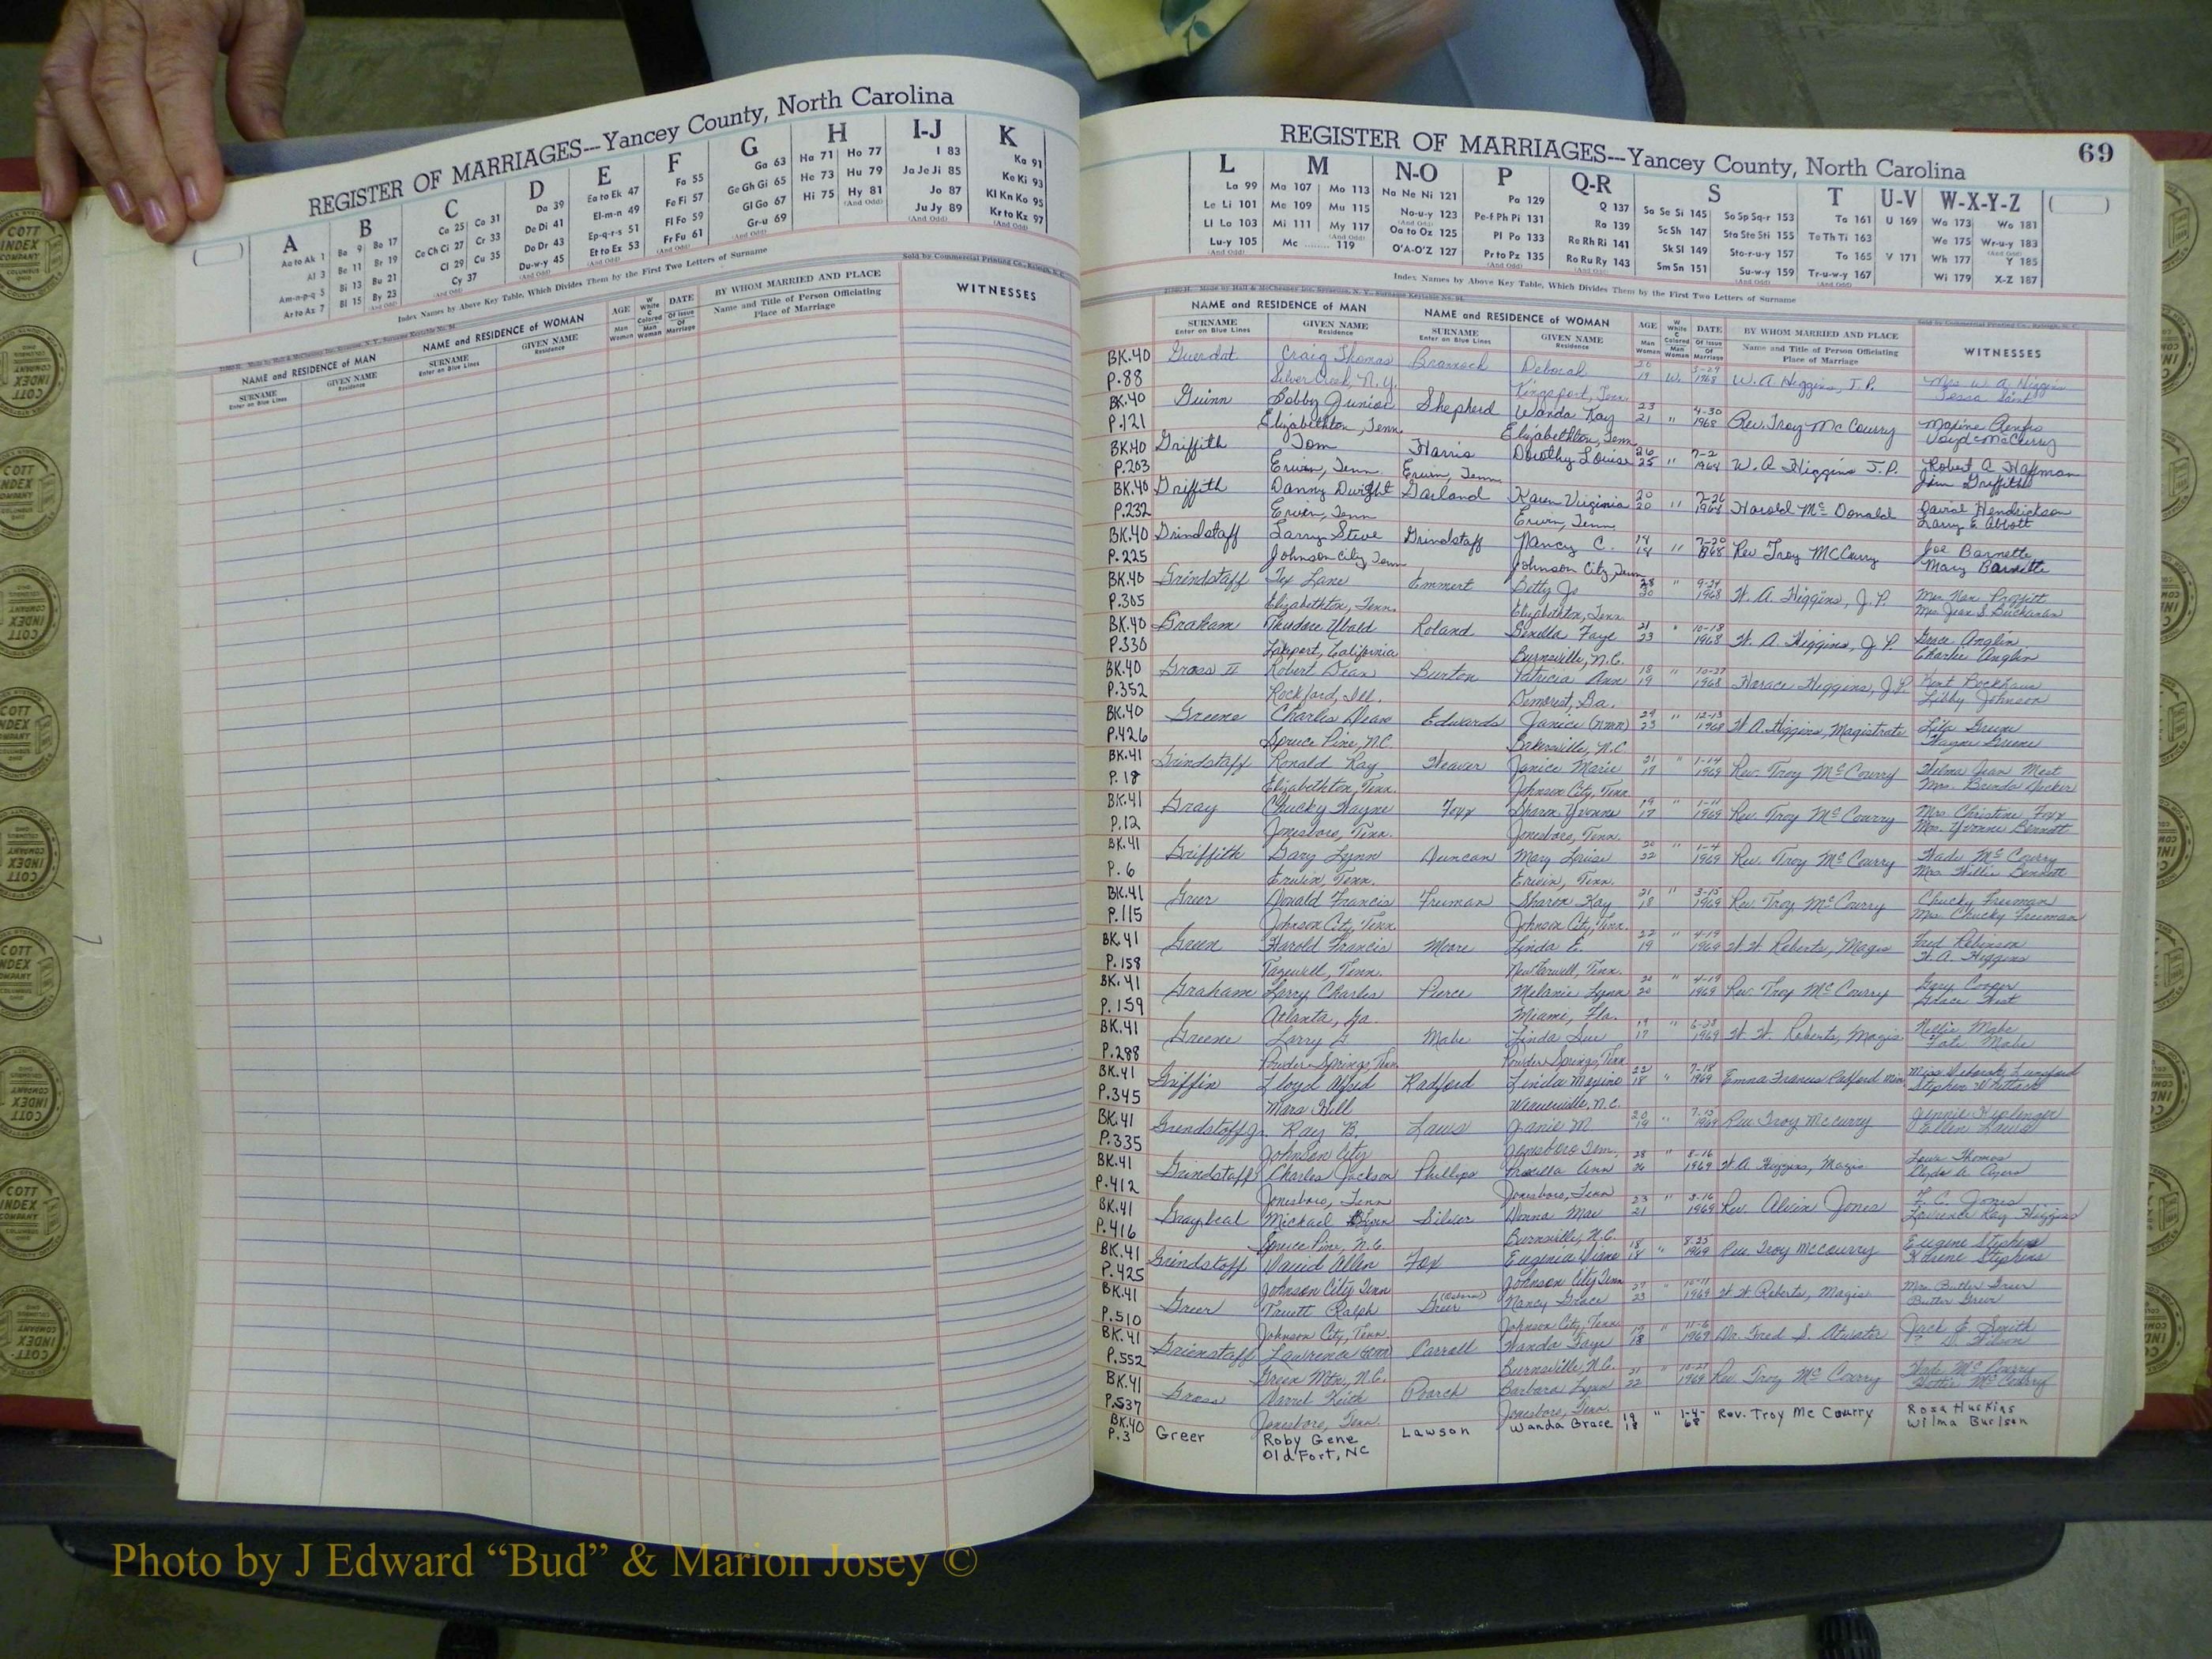 REGISTER OF MARRIAGES---Yancey County, North Carolina
A B C D E F G H I-J K
Aa to Ak 1
Al 3
Am-n-p-q 5
Ar to Az 7
Ba 9 Bo 17
Be 11 Br 19
Bi 13 Bu 21
Bl 15 By 23
Ca 25 Co 31
Ce Ch Ci 27 Cr 33
Cl 29 Cu 35
Cy 37
Da 39
De Di 41
Do Dr 43
Du-w-y 45
Ea to Ek 47
El-m-n 49
Ep-q-r-s 51
Et to Ez 53
Fa 55
Fe Fi 57
Fl Fo 59
Fr Fu 61
Ga 63
Ge Gh Gi 65
Gl Go 67
Gr-u 69
Ha 71 Ho 77
He 73 Hu 79
Hi 75 Hy 81
I 83
Ja Je Ji 85
Jo 87
Ju Jy 89
Ka 91
Ke Ki 93
Kl Kn Ko 95
Kr to Kz 97
Index Names by Above Key Table, Which Divides Them by the First Two Letters of Surname
Sold by Commercial Printing Co., Raleigh, N. C.
NAME and RESIDENCE of MAN
NAME and RESIDENCE of WOMAN
AGE
DATE
BY WHOM MARRIED AND PLACE
WITNESSES
SURNAME
Enter on Blue Lines
GIVEN NAME
Residence
SURNAME
Enter on Blue Lines
GIVEN NAME
Residence
Name and Title of Person Officiating
Place of Marriage
69
REGISTER OF MARRIAGES---Yancey County, North Carolina
L M N-O P Q-R S T U-V W-X-Y-Z
La 99
Le Li 101
Ll Lo 103
Lu-y 105
Ma 107 Mo 113
Me 109 Mu 115
Mi 111 My 117
Mc 119
Na Ne Ni 121
No-u-y 123
Oa to Oz 125
O'A-O'Z 127
Pa 129
Pe-f Ph Pi 131
Pl Po 133
Pr to Pz 135
Q 137
Ra 139
Re Rh Ri 141
Ro Ru Ry 143
Sa Se Si 145 So Sp Sq-r 153
Sc Sh 147 Sta Ste Sti 155
Sk Sl 149 Sto-r-u-y 157
Sm Sn 151 Su-w-y 159
Ta 161
Te Th Ti 163
To 165
Tr-u-w-y 167
U 169
V 171
Wa 173 Wo 181
We 175 Wr-u-y 183
Wh 177 Y 185
Wi 179 X-Z 187
Index Names by Above Key Table, Which Divides Them by the First Two Letters of Surname
NAME and RESIDENCE OF MAN
NAME and RESIDENCE OF WOMAN
AGE
DATE
BY WHOM MARRIED AND PLACE
WITNESSES
SURNAME
Enter on Blue Lines
GIVEN NAME
Residence
SURNAME
Enter on Blue Lines
GIVEN NAME
Residence
Name and Title of Person Officiating
Place of Marriage
BK.40 Guerdat Craig Thomas Deborah W. 1968 W. A Higgins, J.P. Mrs W. A. Higgins
P.88 Silver Creek, N.Y. Kingsport, Tenn.
BK.40 Guinn Bobby Junior Shepherd Wanda Kay 23 21 " 4-30 1968 Rev. Troy McCourry
P.121 Elizabethton, Tenn. Elizabethton, Tenn. Loyd McCurry
BK.40 Griffith Tom Harris Dorothy Louise 26 25 " 7-2 1968 W. A Higgins J.P. Robert A Haffman
P.203 Erwin, Tenn. Erwin, Tenn. Jim Griffith
BK.40 Griffith Danny Dwight Garland Karen Virginia 20 20 " 7-26 1968 Harold Mc Donald David Hendrickson
P.232 Erwin, Tenn Erwin, Tenn. Larry E. Abbott
BK.40 Grindstaff Larry Steve Grindstaff Nancy C. " 7-20 1968 Rev Troy McCurry Joe Barnette
P.225 Johnson City Tenn Johnson City, Tenn Mary Barnette
BK.40 Grindstaff Tex Lane Emmert Betty Jo 28 30 " 9-24 1968 W. A. Higgins, J.P. Mrs Nan Proffitt
P.305 Elizabethton, Tenn. Elizabethton, Tenn. Mrs. Jean S. Buchanan
BK.40 Graham Theodore Ybald Roland Genella Faye 21 23 " 10-18 1968 W. A. Higgins, J.P. Grace Anglin
P.330 Lakeport, California Burnsville, N.C. Charlie Anglin
BK.40 Gross II Robert Dean Burton Patricia Ann 18 19 " 10-27 1968 Horace Higgins, J.P. Kurt Bockhaus
P.352 Rockford, Ill. Demorest, Ga. Libby Johnson
BK.40 Greene Charles Dean Edwards Janice (NMN) 24 23 12-13 1968 W. A. Higgins, Magistrate Lila Greene
P.426 Spruce Pine, N.C. Bakersville, N.C. Wayne Greene
BK.41 Grindstaff Ronald Ray Weaver Janice Marie 21 17 " 1-14 1969 Rev. Troy McCourry Wilma Jean West
P.18 Elizabethton, Tenn. Johnson City, Tenn. Mrs. Brenda Decker
BK.41 Gray Chucky Wayne Foxx Sharon Yvonne 19 17 " 1-11 1969 Rev. Troy McCourry Mrs. Christine Foxx
P.12 Jonesboro, Tenn. Jonesboro, Tenn. Mrs. Yvonne Bennett
BK.41 Griffith Gary Lynn Duncan Mary Louise 20 22 " 1-4 1969 Rev. Troy McCourry Wade McCourry
P.6 Erwin, Tenn. Erwin, Tenn. Mrs. Willie Bennett
BK.41 Greer Donald Francis Freeman Sharon Kay 21 18 " 3-15 1969 Rev. Troy McCourry Chucky Freeman
P.115 Johnson City, Tenn. Johnson City, Tenn. Mrs. Chucky Freeman
BK.41 Green Harold Francis Moore Linda E. 22 19 " 4-19 1969 W. W. Roberts, Magis Fred Robinson
P.158 Tazewell, Tenn. New Tazwell, Tenn. W. A. Higgins
BK.41 Graham Larry Charles Pierce Melanie Lynn 20 " 4-19 1969 Rev. Troy McCourry Gary Cooper
P.159 Atlanta, Ga. Miami, Fla. Grace West
BK.41 Greene Larry G Mabe Linda Sue 19 17 " 6-28 1969 W. W. Roberts, Magis Nellie Mabe
P.288 Powder Springs, Tenn Powder Springs, Tenn Tate Mabe
BK.41 Griffin Lloyd Alfred Radford Linda Maxine 22 18 " 7-18 1969 Emma Frances Radford Min. Miss Deborah Lunsford
P.345 Mars Hill Weaverville, N.C. Stephen Whittack
BK.41 Grindstaff Jr. Ray B. Laws Janie M 20 19 " 7-15 1969 Rev Troy McCurry Jennie Keplinger
P.335 Johnson City Jonesboro Tenn. Ellen Laws
BK.41 Grindstaff Charles Jackson Phillips Ann 28 26 " 8-16 1969 W A Higgins, Magis Thomas
P.412 Jonesboro, Tenn Jonesboro, Tenn Clyde A. Ayers
BK.41 Graybeal Michael Lynn Silver Donna Mae 23 21 " 8-16 1969 Rev. Alvin Jones F. C. Jones
P.416 Spruce Pine, N.C. Burnsville, N.C. Lawrence Ray Higgins
BK.41 Grindstaff David Allen Fox Eugenia Diane 18 18 " 8-25 1969 Rev Troy McCourry Eugene Stephens
P.425 Johnson City Tenn Johnson City Tenn Karene Stephens
BK.41 Greer Truett Ralph Greer Nancy Grace 27 23 " 10-11 1969 W. W. Roberts, Magis Mrs. Butler Greer
P.510 Johnson City, Tenn. Johnson City, Tenn Butler Greer
BK.41 Grindstaff Lawrence Carroll Wanda Faye 19 18 " 11-6 1969 Dr. Fred S. Atwater Jack E. Smith
P.552 Green Mtn., N.C. Burnsville, N.C. Wilson
BK.41 Gross Darrel Keith Poarch Barbara Lynn 21 22 " 10-27 1969 Rev. Troy McCourry Wade McCourry
P.537 Jonesboro, Tenn. Jonesboro, Tenn. Hattie McCourry
BK.40 Greer Roby Gene Lawson Wanda Grace 19 18 " 1-4-68 Rev. Troy Mc Courry Rosa Huskins
P.3 Old Fort, NC Wilma Burlson
COTT
INDEX
COMPANY
COLUMBUS
OHIO
Photo by J Edward “Bud” & Marion Josey ©